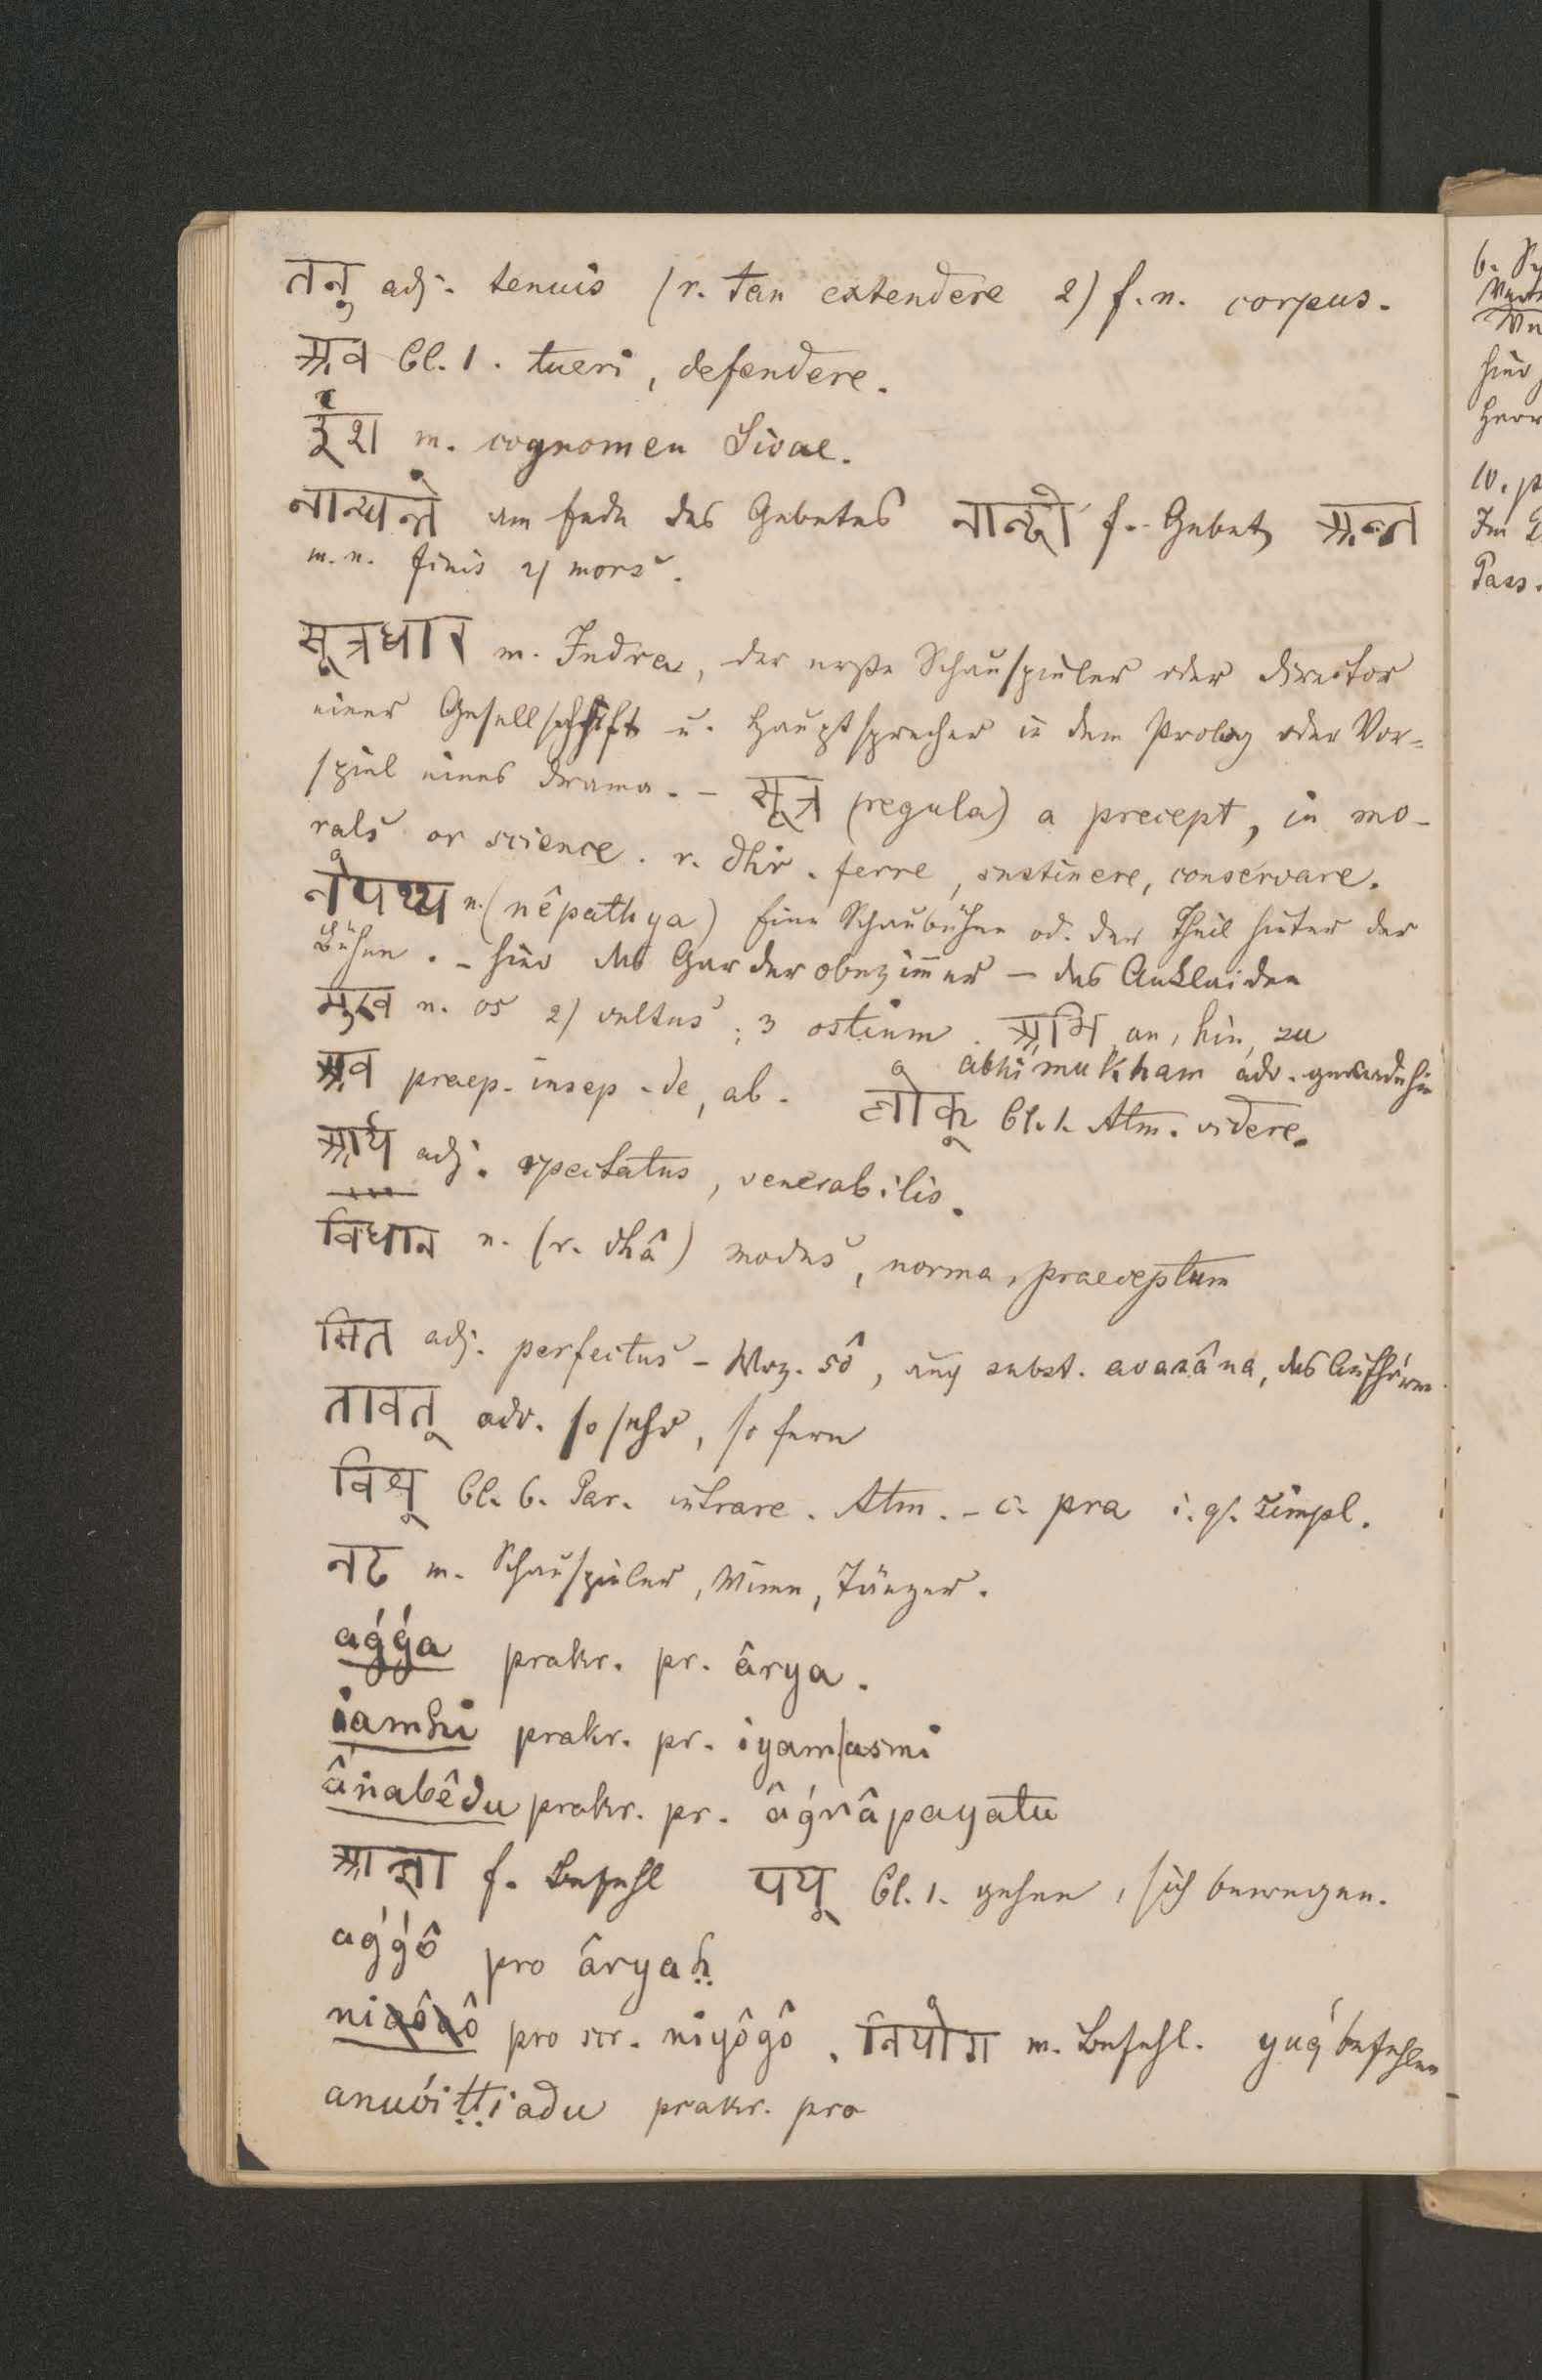 तनु adj. tenuis (r. tan extendere 2) f. n. corpus.
अव Cl. 1. tueri, defendere.
ईश m. cognomen Sivae.
नान्द्यन्ते am Ende des Gebetes नान्दी f. Gebet, अन्त
m. n. finis 2) mors.
सूत्रधार m. Indra, der erste Schauspieler oder Director
einer Gesellschaft u. Hauptsprecher in dem Prolog oder Vor=
spiel eines Drama. – सूत्र (regula) a precept, in mo-
rals or science. r. dhir. ferre, sustinere, conservare.
नेपथ्य n. (nêpathya) Eine Schaubühne od. der Theil hinter der
Bühne. – hier das Garderobezimmer – das Ankleiden
मुख n. os 2) vultus; 3 ostium. अभि an, hin, zu
abhimukham adv.
अव praep. insep. de, ab. लोक् Cl. 1. Atm. videre.
आर्य adj. spectatus, venerabilis.
विधान n. (r. dhâ) modus, norma, praeceptum
सित adj. perfectus – Wrz. sô, subst. avasâna, das Aufhören
तावत् adv. so sehr, so fern
विश् Cl. 6. Par. intrare. Atm. – c. pra i. q. simpl.
नट m. Schauspieler, Mime, Tänzer.
aǵǵa prakr. pr. ârya.
iamhi prakr. pr. iyam|asmi
ânabêdu prakr. pr. âǵnâpayatu
आज्ञा f. Befehl पय् Cl. 1. gehen, sich bewegen.
aǵǵô pro âryaḥ
niôô pro scr. niyôgô. नियोग m. Befehl. yuǵ befehlen
anućiṭṭiadu prakr. pro
6. Sy
hier
Herr
10. p
Im
Pass.